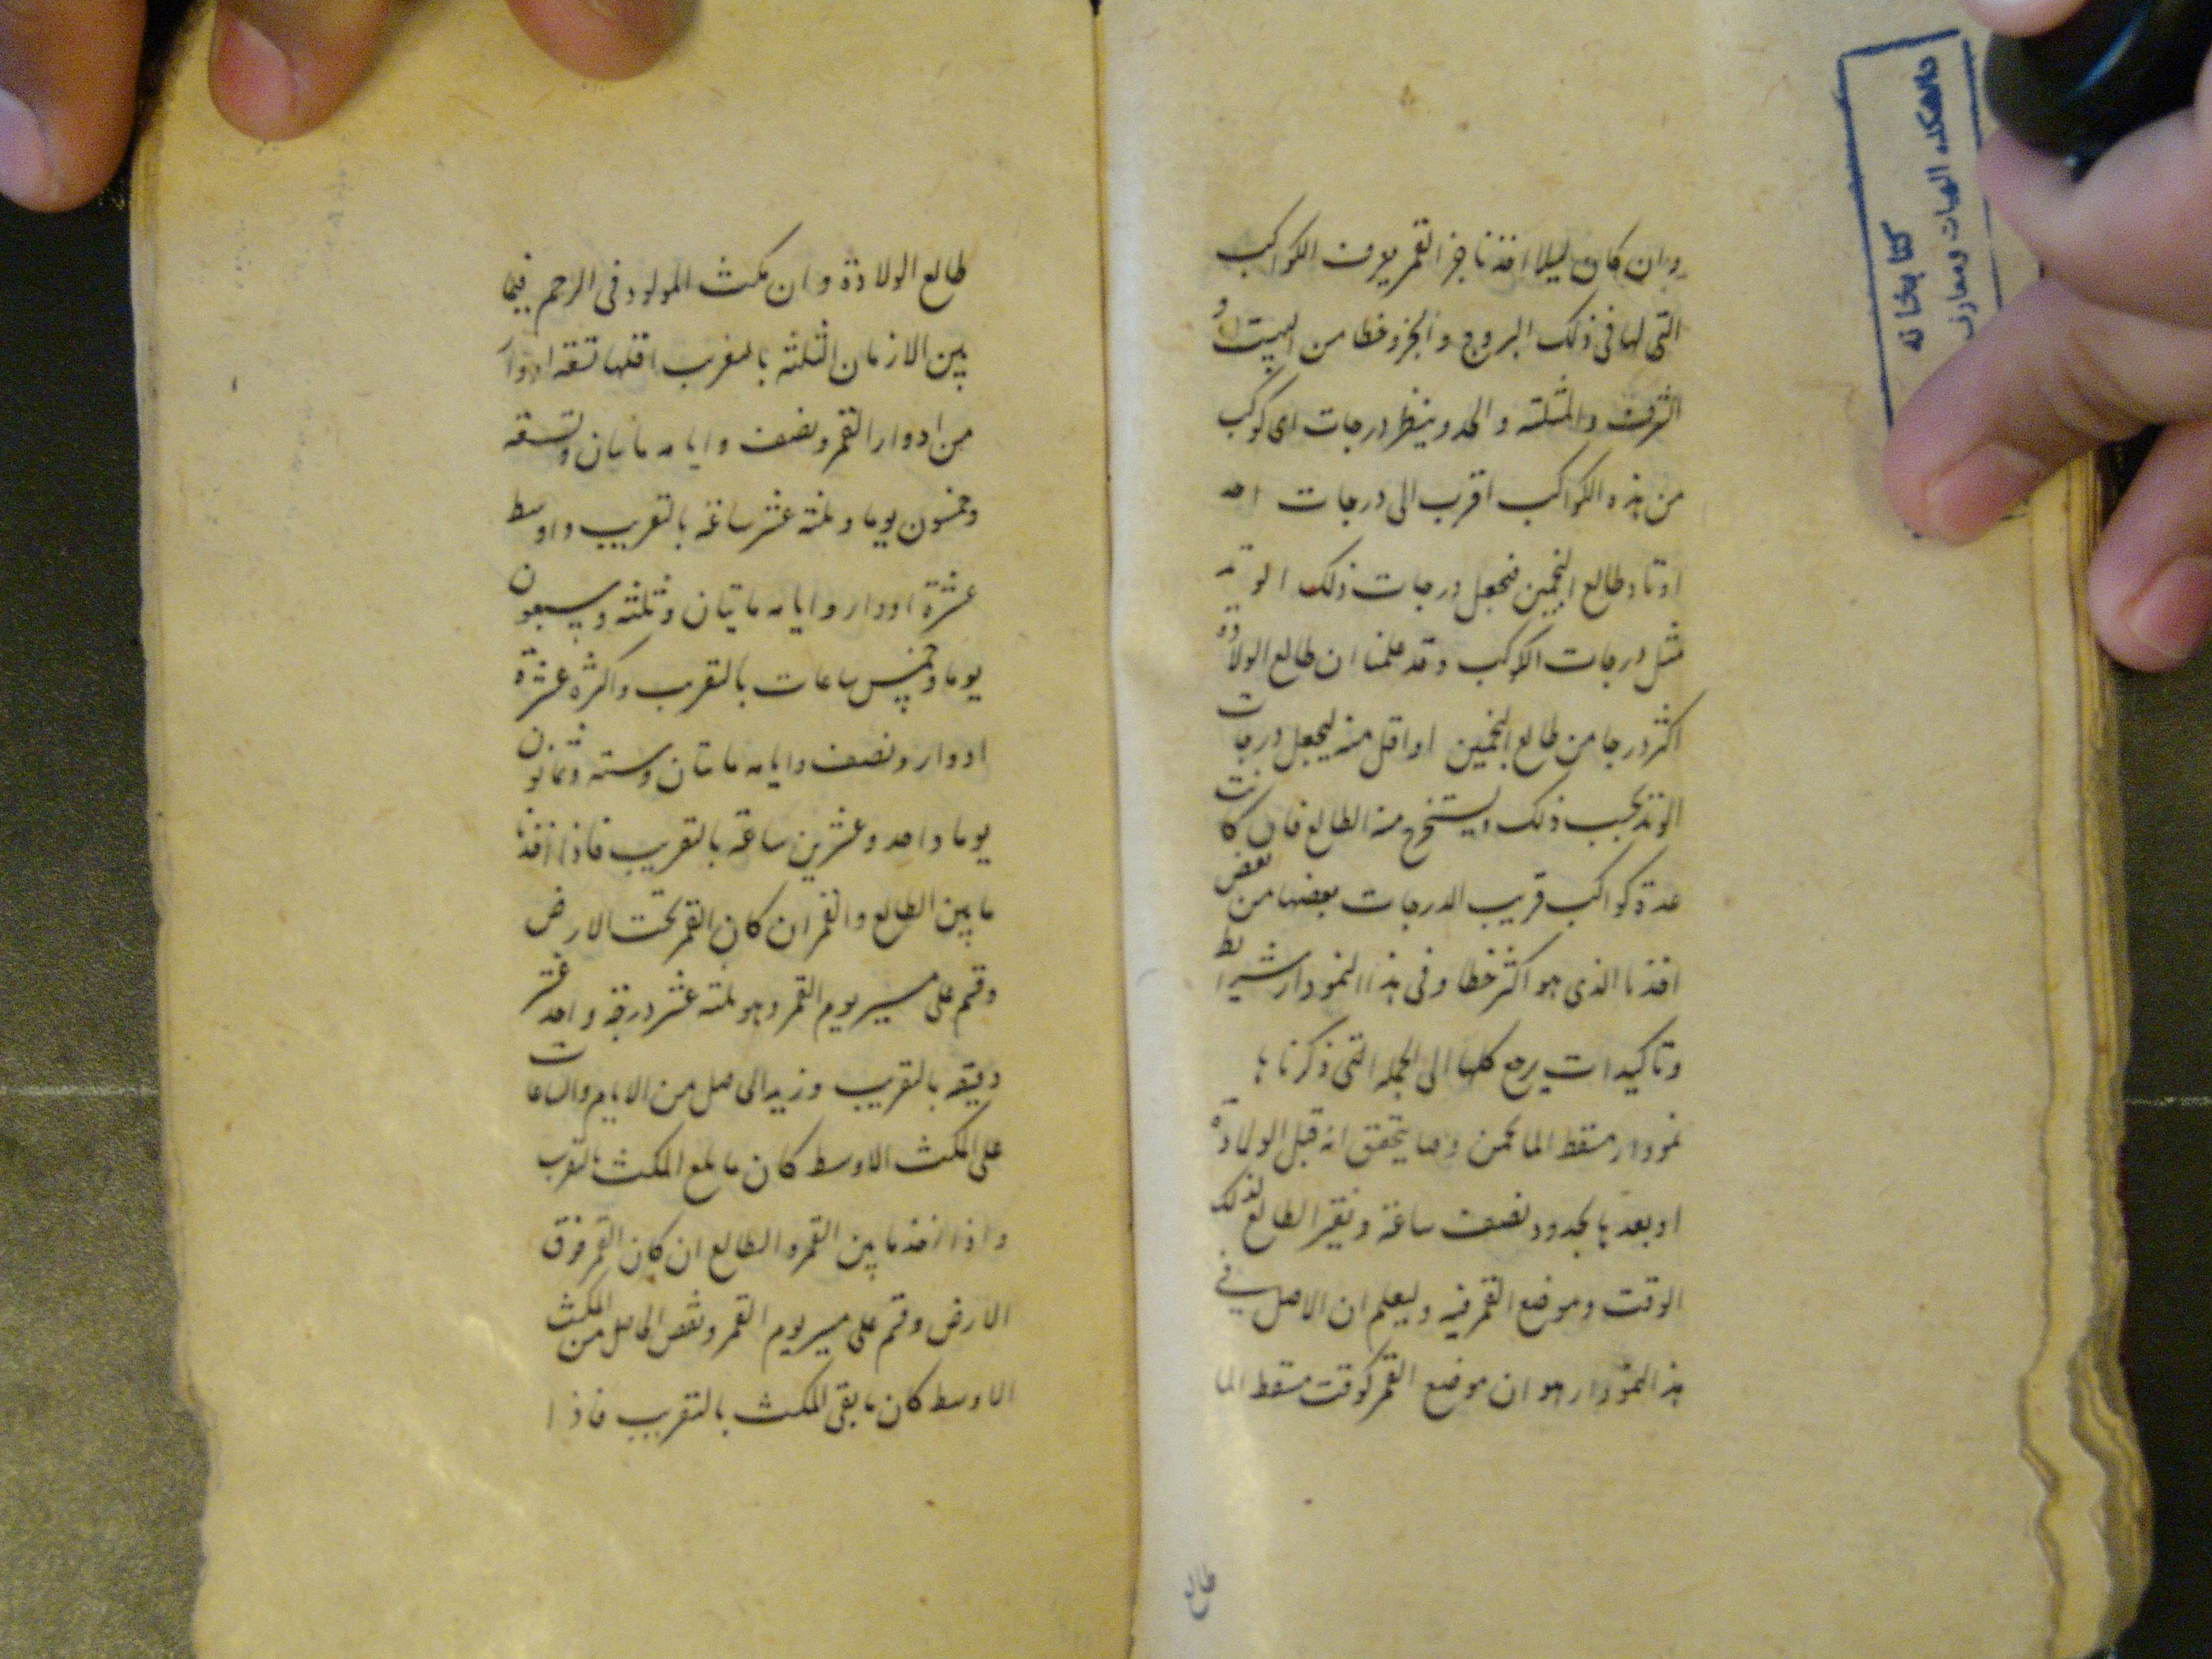 وان كان ليلا اخذنا جزء القمر يعرف الكواكب
التى لها فى ذلك البروج والجزو خطا من البيت و
الشرف والمثلثه والحد وينظر درجات اى كوكب
من هذه الكواكب اقرب الى درجات احد
اوتاد طالع التخمين فنجعل درجات ذلك الوتد
مثل درجات الكوكب وقد علمنا ان طالع الولادة
اكثر درجا من طالع التخمين او اقل منه ليجعل درجات
الوتد بحسب ذلك ويستخرج منه الطالع فان كانت
عدة كواكب قريب الدرجات بعضها من بعض
اخذنا الذى هو اكثر خطا وفى هذا النمودار شرايط
وتاكيدات يرجع كلها الى الجمله التى ذكرناها
نمودار مسقط الما يتحقق انه قبل الولادة
او بعدها بحدود نصف ساعة الطالع لذلك
الوقت وموضع القمر فيه وليعلم ان الاصل في
هذا النمودار هو ان موضع القمر لوقت مسقط الما
طالع
طالع الولادة وان مكث المولود فى الرحم فيما
بين الازمان الثلثه بالمغرب اقلها تسعه ادوار
من ادوار القمر ونصف وايامه ماتيان وتسعه
وخمسون يوما وثلثة عشر ساعة بالتقريب واوسط
عشرة ادوار وايامه ماتيان وثلثه وسبعون
يوما وخمس ساعات بالتقريب واكثره عشرة
ادوار ونصف وايامه ماتيان وسته وثمانون
يوما واحد وعشرين ساعة بالتقريب فاذا اخذنا
ما بين الطالع والقمر ان كان القمر تحت الارض
وقسم على مسير يوم القمر وهو ثلثه عشر درجة واحد عشر
دقيقه بالتقريب وزيد الحاصل من الايام والساعات
على المكث الاوسط كان ما بلغ المكث بالتقريب
واذا اخذ ما بين القمر والطالع ان كان القمر فوق
الارض وقسم على مسير يوم القمر ونقص الحاصل من المكث
الاوسط كان ما بقى المكث بالتقريب فاذا
كتابخانه
دانشكده الهيات ومعارف